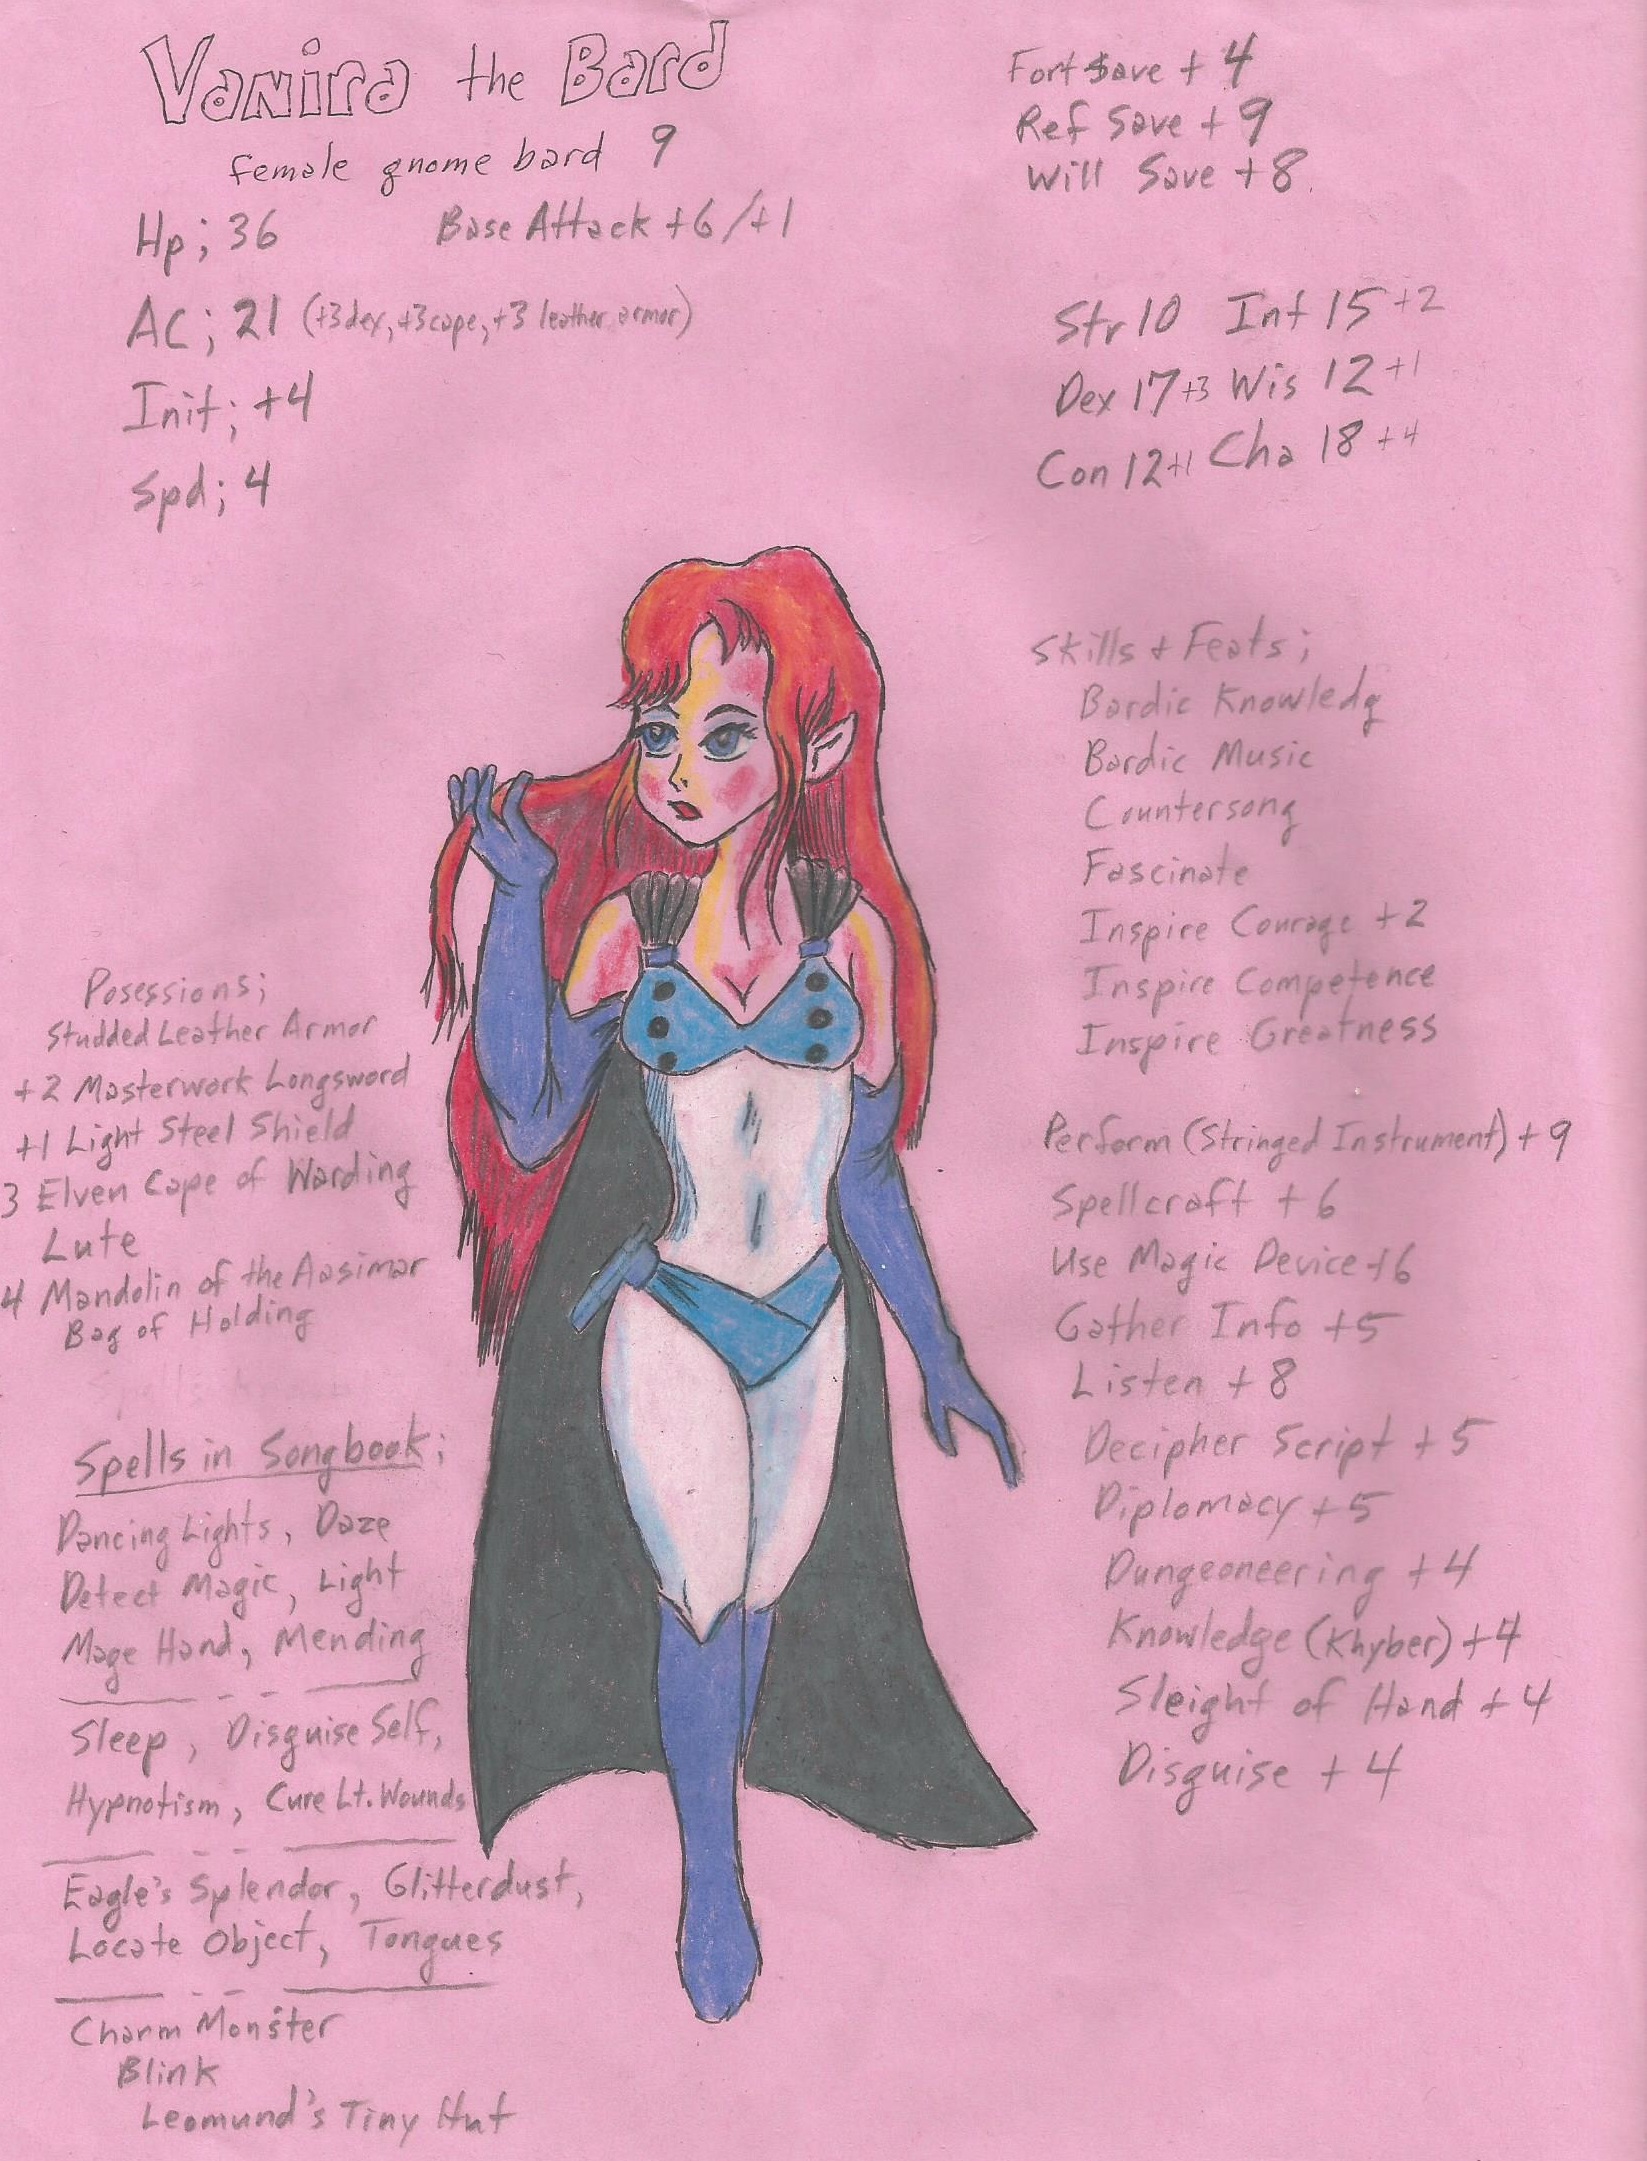 Vanira the Bard
female gnome bard 9
Hp; 36 Base Attack +6/+1
AC; 21 (+3 dex, +3 cape, +3 leather armor)
Init; +4
Spd; 4
Fort Save + 4
Ref Save + 9
Will Save +8.
Str 10 Int 15 +2
Dex 17 +3 Wis 12 +1
Con 12 +1 Cha 18 +4
Skills + Feats;
Bardic Knowledg
Bardic Music
Countersong
Fascinate
Inspire Courage +2
Inspire Competence
Inspire Greatness
Perform (Stringed Instrument) + 9
Spellcraft + 6
Use Magic Device +6
Gather Info +5
Listen + 8
Decipher Script + 5
Diplomacy +5
Dungeoneering + 4
Knowledge (Khyber) +4
Sleight of Hand + 4
Disguise + 4
Posessions;
Studded Leather Armor
+2 Masterwork Longsword
+1 Light Steel Shield
3 Elven Cape of Warding
Lute
4 Mandolin of the Aasimar
Bag of Holding
Spells in Songbook;
Dancing Lights, Daze
Detect Magic, Light
Mage Hand, Mending
Sleep, Disguise Self,
Hypnotism, Cure Lt. Wounds
Eagle's Splendor, Glitterdust,
Locate Object, Tongues
Charm Monster
Blink
Leomund's Tiny Hut